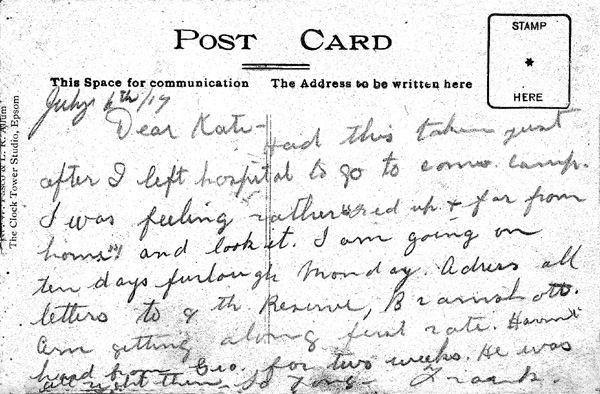 POST CARD
STAMP
*
HERE
This Space for communication The Address to be written here
& L. R. Allum
The Clock Tower Studio, Epsom
July 6th/17
Dear Kate-
Had this taken just
after I left hospital to go to conv. camp.
I was feeling rather used up & far from
home" and look it. I am going on
ten days furlough Monday. Adress all
letters to 8th Reserve, Bramshott.
Am getting along first rate. Havent
heard from Geo. for two weeks. He was
all right then. So long- Frank.